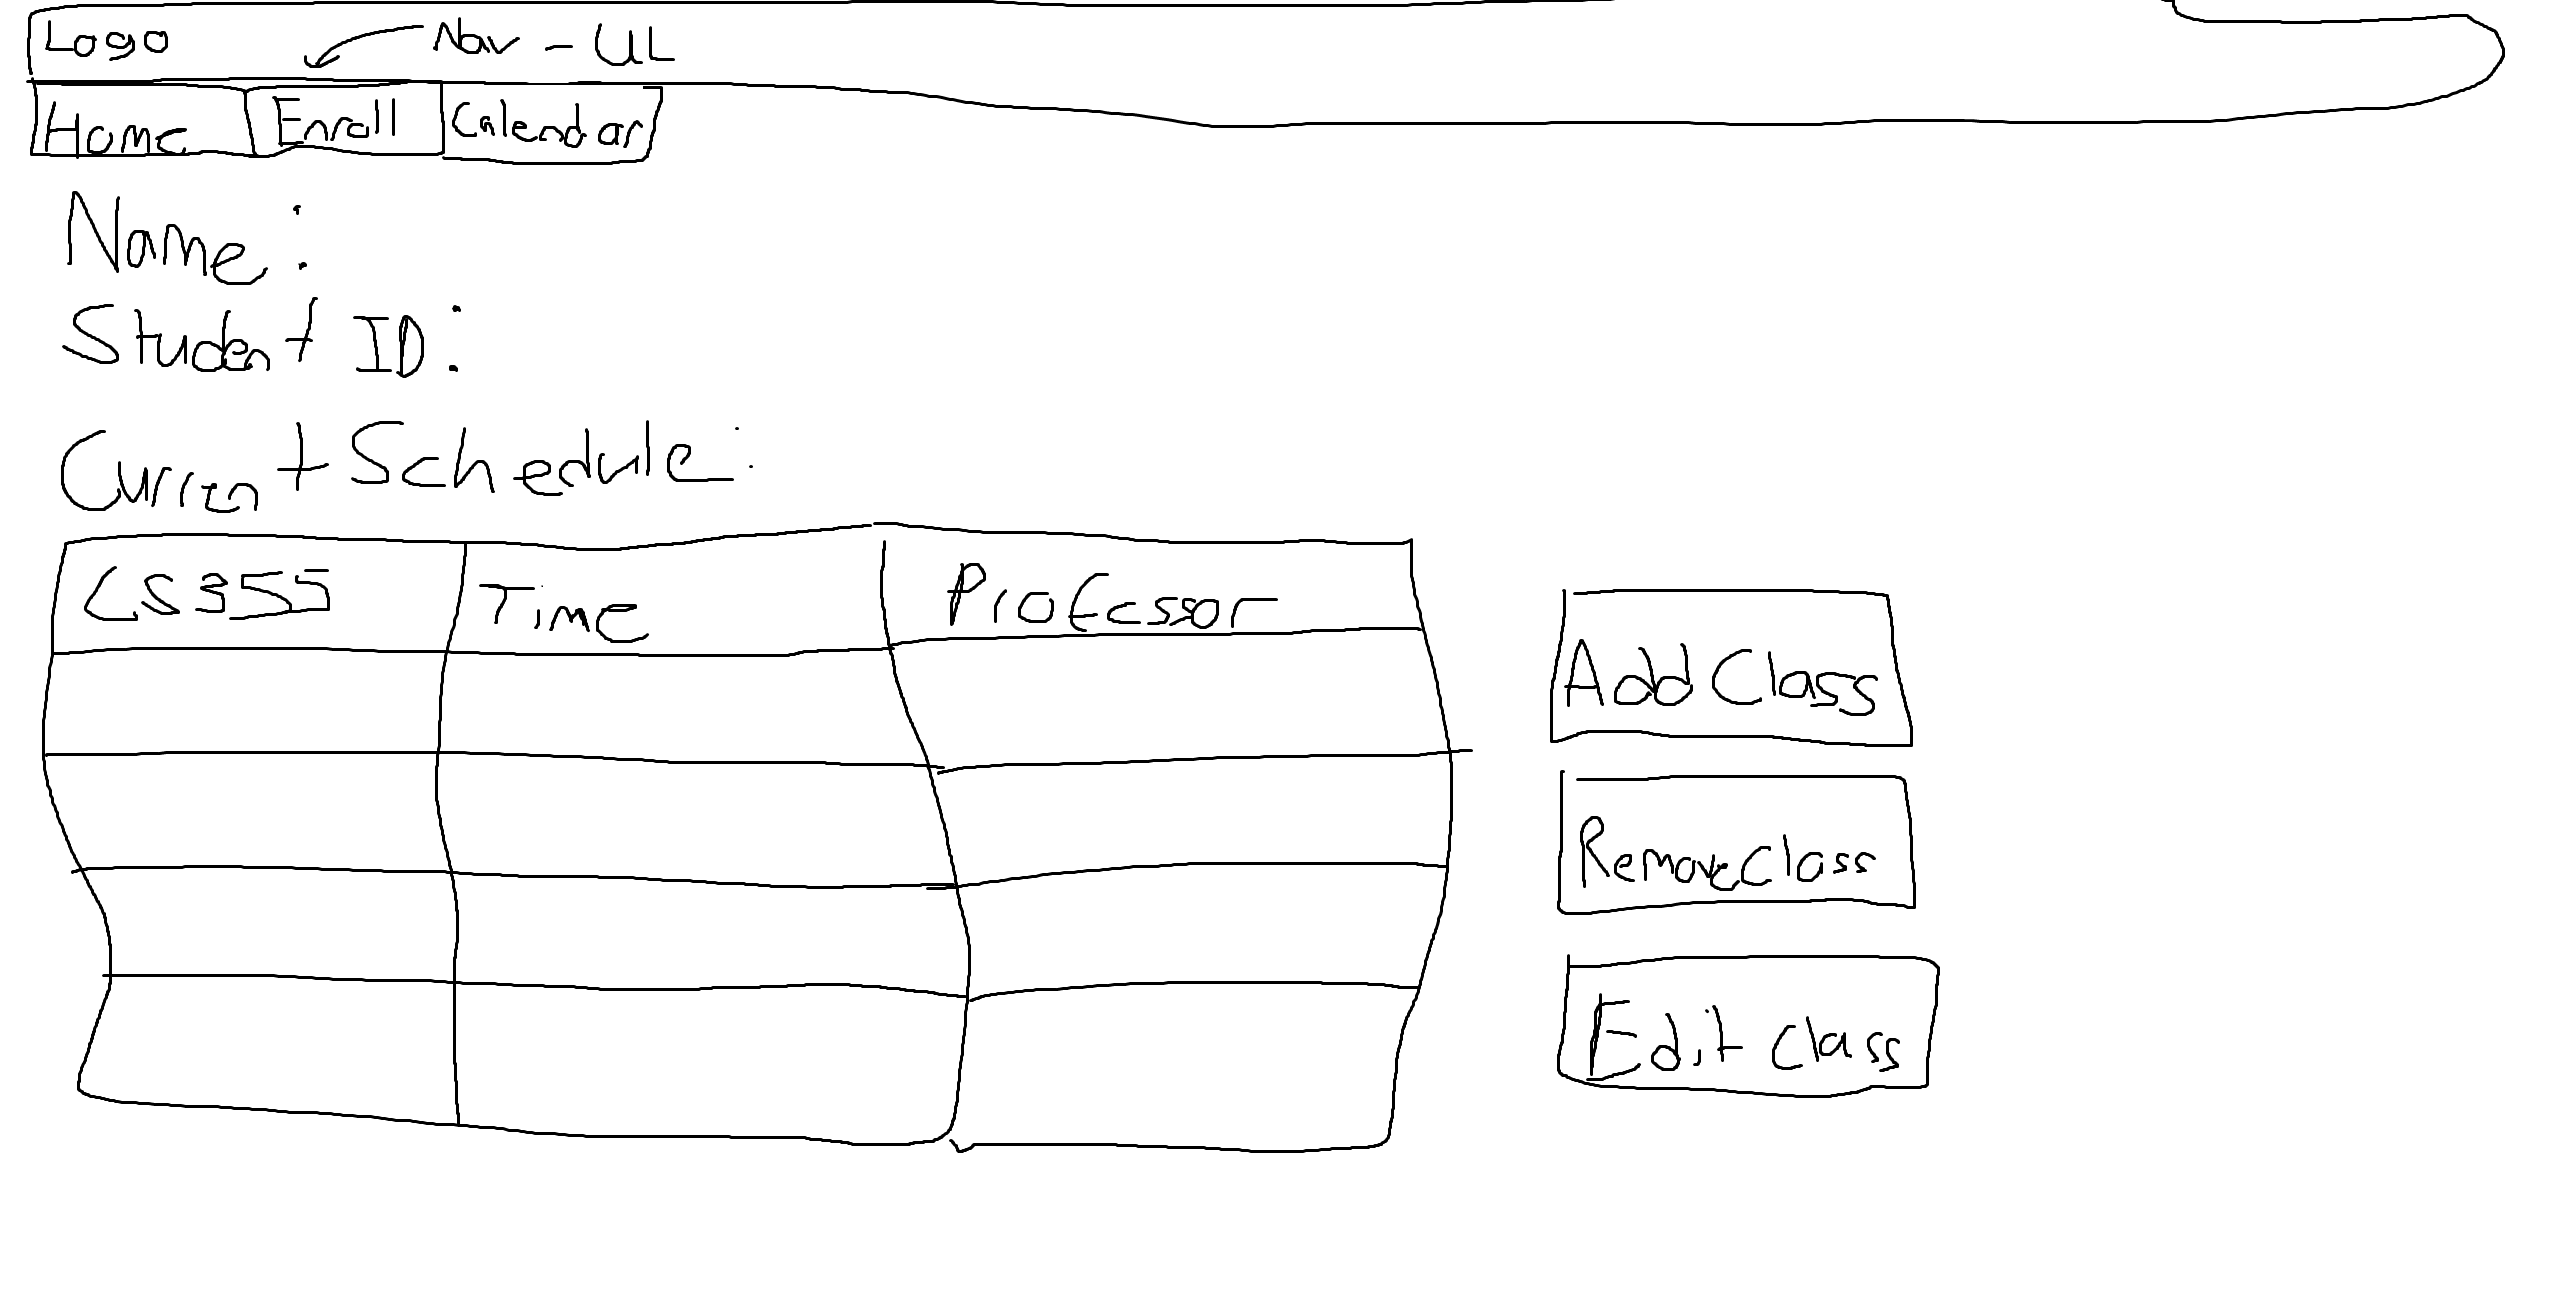 Logo Nav - UL
Home Enroll Calendar
Name:
Student ID:
Current Schedule:
CS355 Time Professor
Add Class
Remove Class
Edit Class